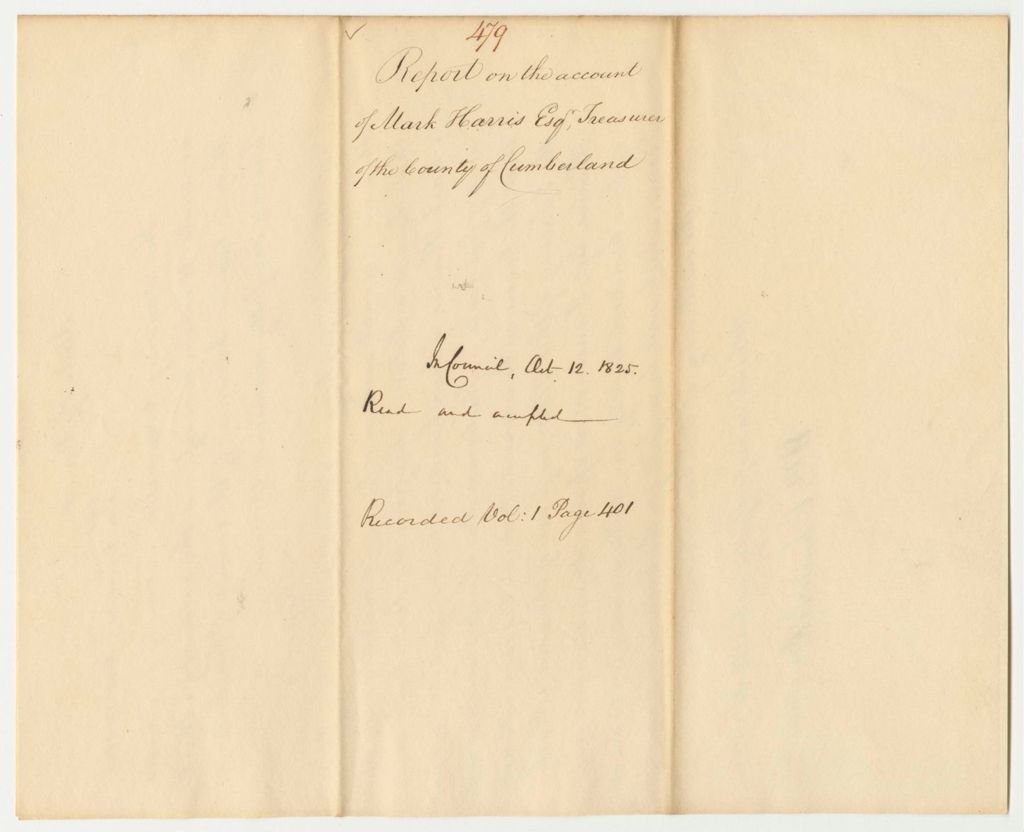 479
Report on the account
of Mark Harris Esqr, Treasurer
of the County of Cumberland
In Council, Oct 12. 1825.
Read and accepted
Recorded Vol: 1 Page 401